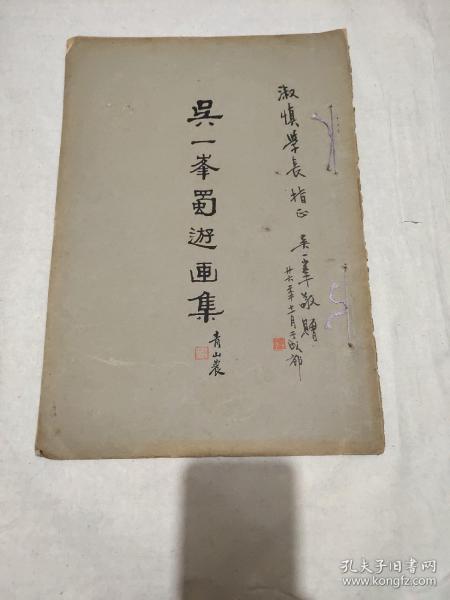 淑慎學長指正
吳一峯敬贈
廿六年十一月于成都
吳一峯蜀遊画集
青山農
孔夫子旧书网
www.kongfz.com